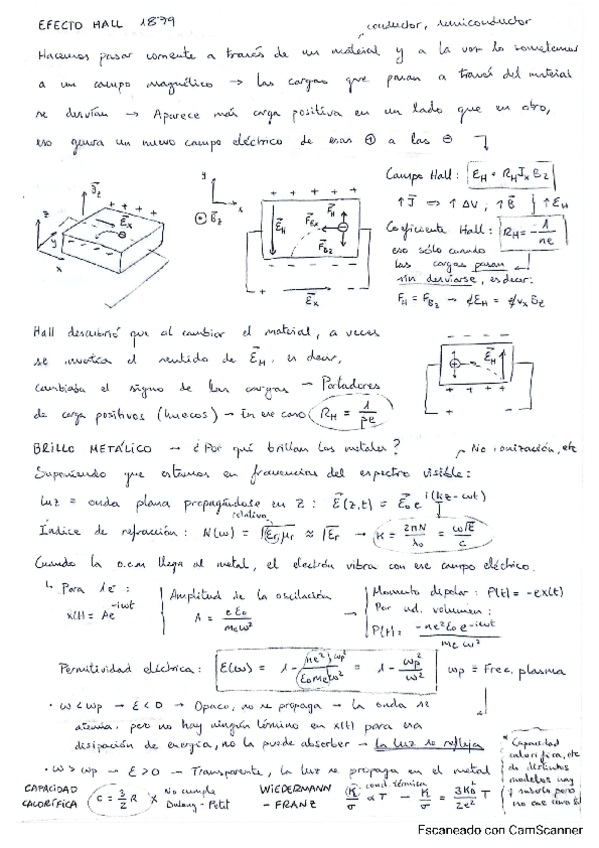 EFECTO HALL 1879
conductor, semiconductor
Hacemos pasar corriente a través de un material y a la vez lo sometemos
a un campo magnético → las cargas que pasan a través del material
se desvían → Aparece más carga positiva en un lado que en otro,
eso genera un nuevo campo eléctrico de esas ⊕ a las ⊖
Campo Hall: E_H = R_H J_x B_z
↑J ⇒ ↑ΔV, ↑B ↑E_H
Coeficiente Hall: R_H = -1/ne
eso sólo cuando
las cargas pasan
sin desviarse, es decir:
F_H = F_Bz → qE_H = qv_x B_z
Hall descubrió que al cambiar el material, a veces
se invertía el sentido de E_H, es decir,
cambiaba el signo de las cargas → Portadores
de carga positivos (huecos) → En ese caso R_H = 1/pe
BRILLO METÁLICO → ¿Por qué brillan los metales?
No ionización, etc
Suponiendo que estamos en frecuencias del espectro visible:
Luz = onda plana propagándose en z: E(z,t) = E_0 e^{i(kz-ωt)}
relativa
Índice de refracción: N(ω) = √(ε_r μ_r) ≈ √ε_r → K = 2πN/λ_0 = ω√ε/c
Cuando la o.e.m llega al metal, el electrón vibra con ese campo eléctrico.
Para 1e⁻:
x(t) = Ae^{-iωt}
Amplitud de la oscilación
A = eE_0/m_e ω²
Momento dipolar: P(t) = -ex(t)
Por ud. volumen:
P(t) = -ne²E_0 e^{-iωt}/m_e ω²
Permitividad eléctrica: ε(ω) = 1 - ne²/ε_0 m_e ω² = 1 - ω_p²/ω² ω_p = Frec. plasma
• ω < ω_p → ε < 0 → Opaco, no se propaga → La onda se
atenúa, pero no hay ningún término en x(t) para esa
disipación de energía, no la puede absorber → la luz se refleja
• ω > ω_p → ε > 0 → Transparente, la luz se propaga en el metal
* Capacidad
calorífica, etc
de distintos
modelos hay
q saberlo pero
CAPACIDAD
CALORÍFICA
C = 3/2 R
No cumple
Dulong-Petit
WIEDERMANN
- FRANZ
cond. térmica
K/σ α T → K/σ = 3K_B²/2e² T
Escaneado con CamScanner